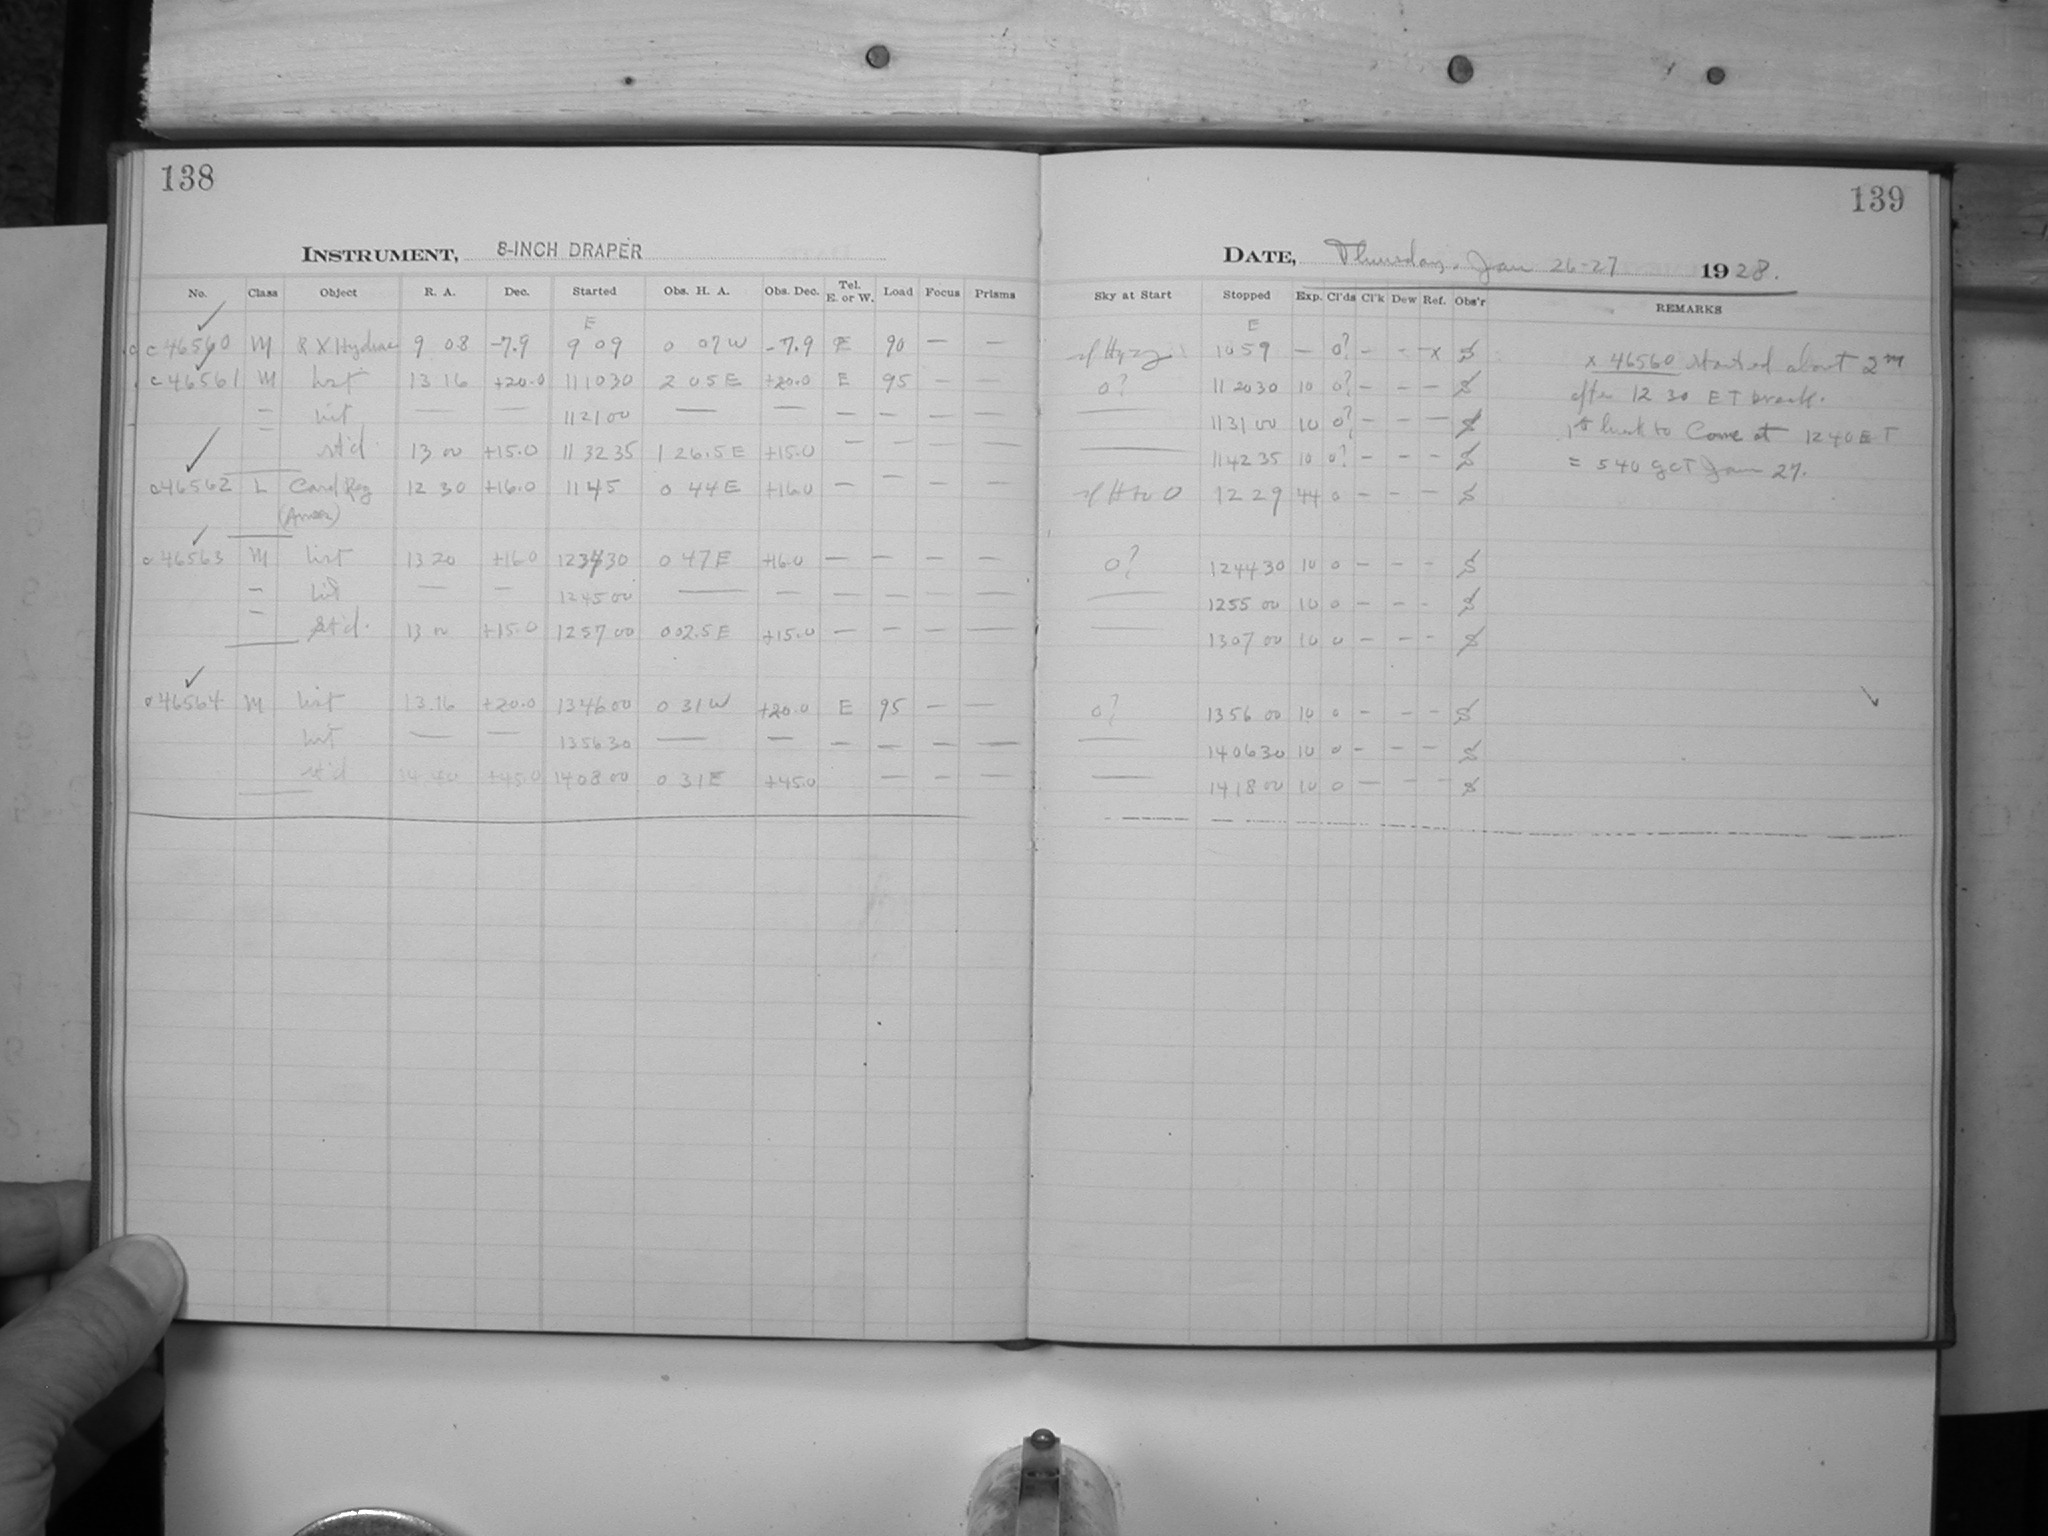 138
139
INSTRUMENT, 8-INCH DRAPER
DATE, Thursday, Jan 26-27 1928.
No. Class Object R. A. Dec. Started Obs. H. A. Obs. Dec. Tel. E. or W. Load Focus Prisms
Sky at Start Stopped Exp. Cl'ds Cl'k Dew Ref. Obs'r REMARKS
E E
c 46560 M R X Hydrae 9 08 -7.9 9 09 0 07 W -7.9 E 90 — — 1059 — 0? — - - x S
c 46561 M list 13 16 +20.0 11 10 30 2 05 E +20.0 E 95 — — 0? 11 20 30 10 0? - - - S
— list — — 11 21 00 — — — — — — — 11 31 00 10 0? - - — S
— st'd 13 00 +15.0 11 32 35 1 26.5 E +15.0 — — — — — 11 42 35 10 0? - - - S
c 46562 L Card Reg 12 30 +16.0 11 45 0 44 E +16.0 — — — — 12 29 44 0 - - - S
c 46563 M list 13 20 +16.0 12 34 30 0 47 E +16.0 — — — — 0? 12 44 30 10 0 - - - S
— list — — 12 45 00 — — — — — — — 12 55 00 10 0 - - - S
— st'd. 13 00 +15.0 12 57 00 0 02.5 E +15.0 — — — — — 13 07 00 10 0 - - - S
c 46564 M list 13 16 +20.0 13 46 00 0 31 W +20.0 E 95 — — 0? 13 56 00 10 0 - - - S
list — — 13 56 30 — — — — — — — 14 06 30 10 0 - - - S
st'd 14 40 +45.0 14 08 00 0 31 E +45.0 — — — — 14 18 00 10 0 — - - S
x 46560 started about 2m
after 12 30 ET
to Come at 12 40 ET
= 5 40 GCT Jan 27.